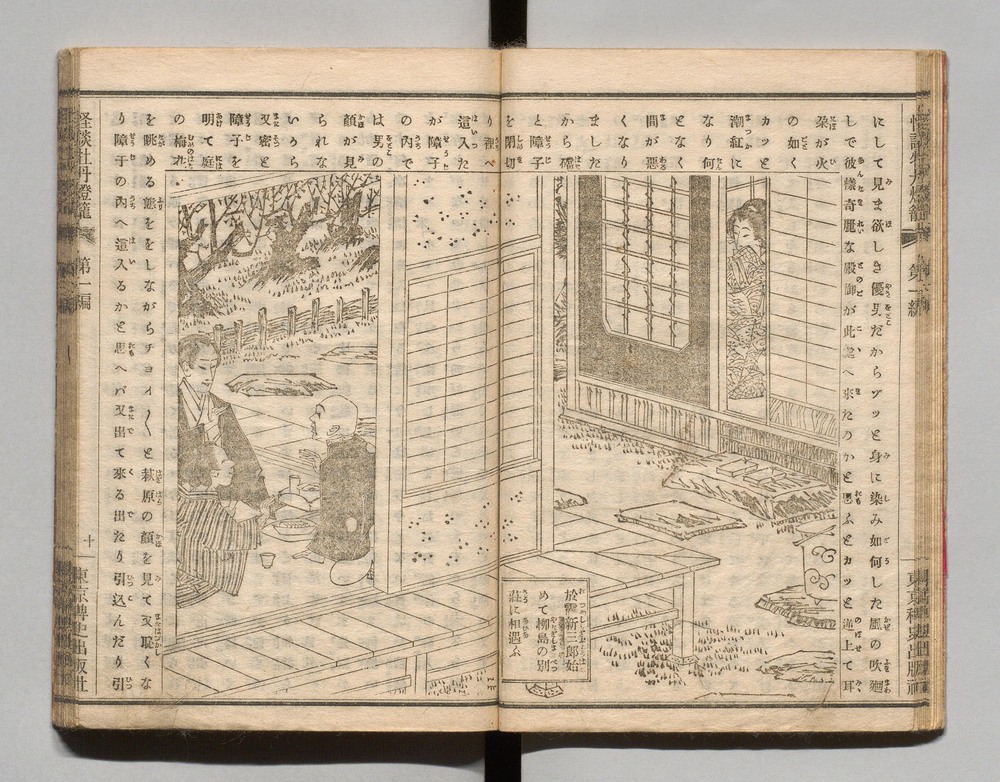 怪談牡丹燈籠 第一編
東京稗史出版社
にして見ま欲しき優男だからゾッと身に染み如何した風の吹廻
しで彼様奇麗な殿御が此ゝへ来たのかと思ふとカッと逆上て耳
朶が火
の如く
カッと
潮紅に
なり何
となく
間が悪
くなり
ました
から礑
と障子
を閉切
り裡へ
這入た
が障子
の內で
は男の
顔が見
られな
いから
又密と
障子を
明て庭
の梅花
を眺める態ををしながらチョイ〱と萩原の顔を見て又恥くな
り障子の內へ這入るかと思へバ又出て来る出たり引込んだり引
於露新三郎始
めて柳島の別
荘に相遇ふ
怪談牡丹燈籠 第一編
十
東京稗史出版社